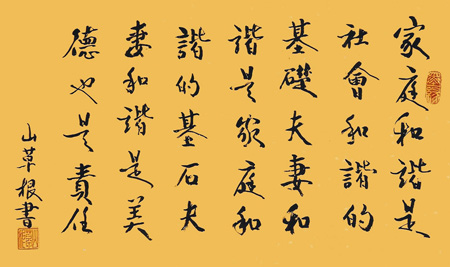 家庭和諧是
社會和諧的
基礎夫妻和
諧是家庭和
諧的基石夫
妻和諧是美
德也是責任
山草根書